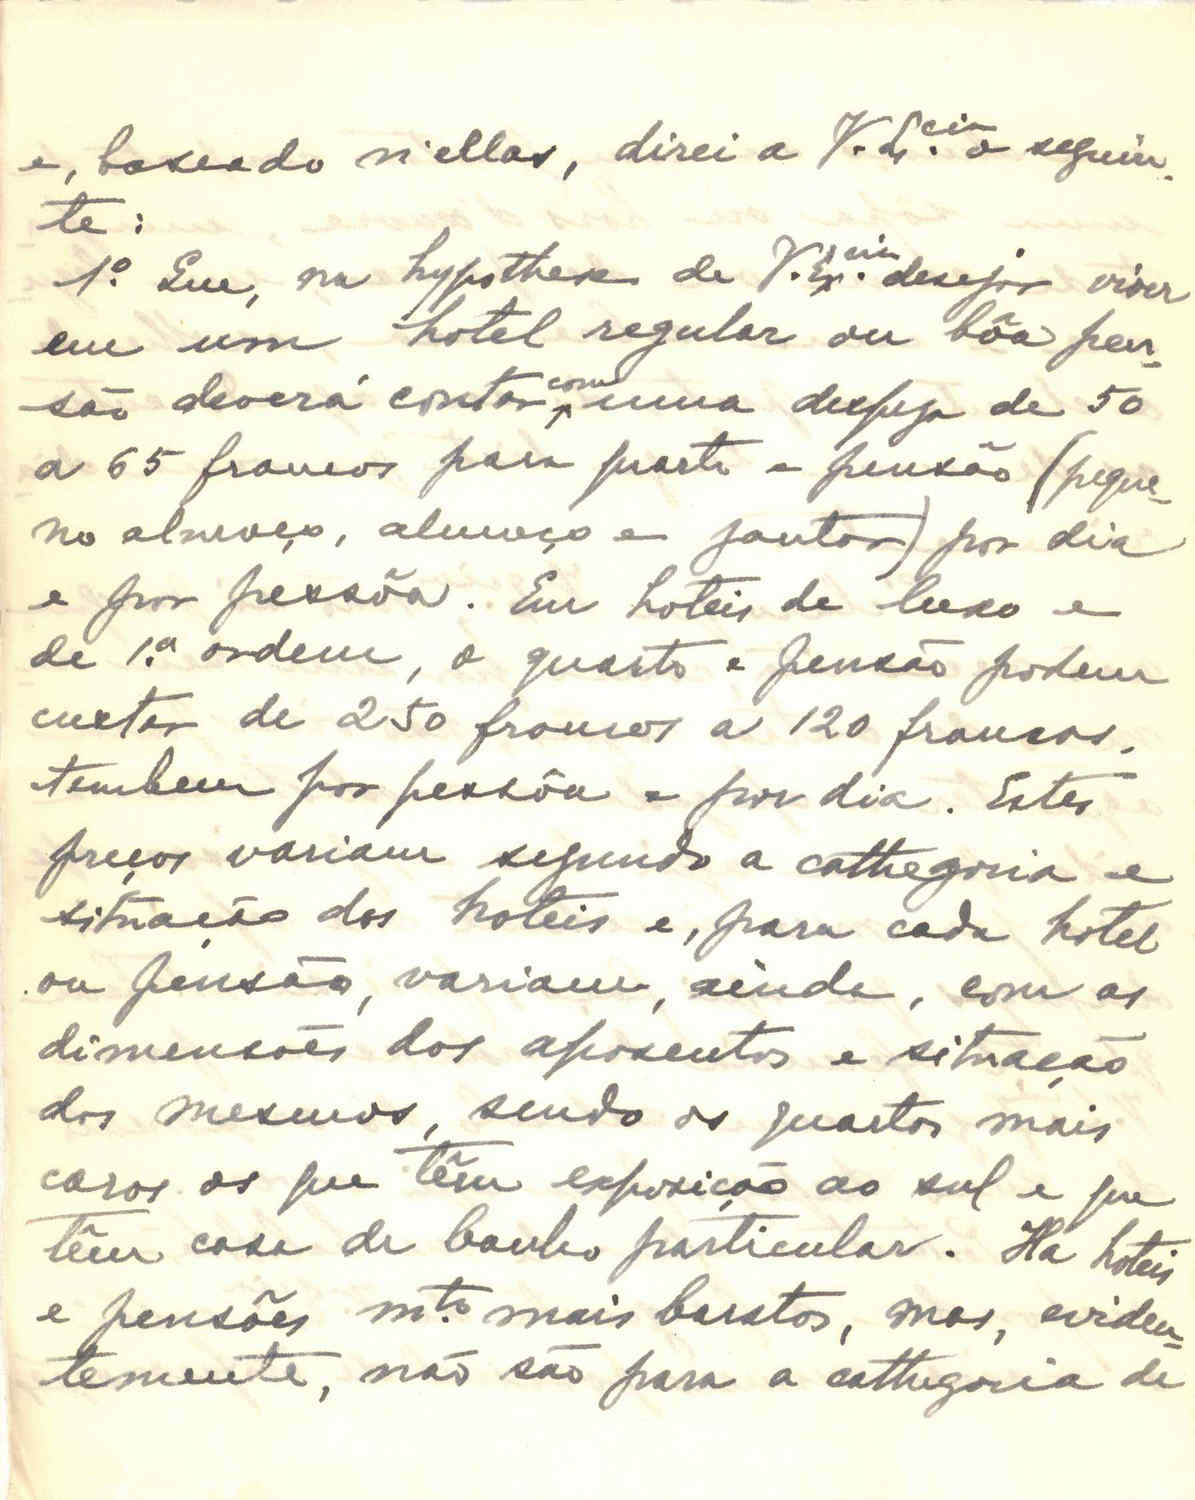 e, baseado n'ellas, direi a V. Ex.cia o seguin-
te:
1.º Que, na hypothese de V. Ex.cia desejar viver
em um hotel regular ou bôa pen-
são deverá contar com uma despeza de 50
a 65 francos para quarto e pensão (peque-
no almoço, almoço e jantar) por dia
e por pessôa. Em hoteis de luxo e
de 1.ª ordem, o quarto e pensão podem
custar de 250 francos a 120 francos,
tambem por pessôa e por dia. Estes
preços variam segundo a cathegoria e
situação dos hoteis e, para cada hotel
ou pensão, variam, ainda, com as
dimensões dos aposentos e situação
dos mesmos, sendo os quartos mais
caros os que têm exposição ao sul e que
têm casa de banho particular. Ha hoteis
e pensões mto. mais baratos, mas, eviden-
temente, não são para a cathegoria de